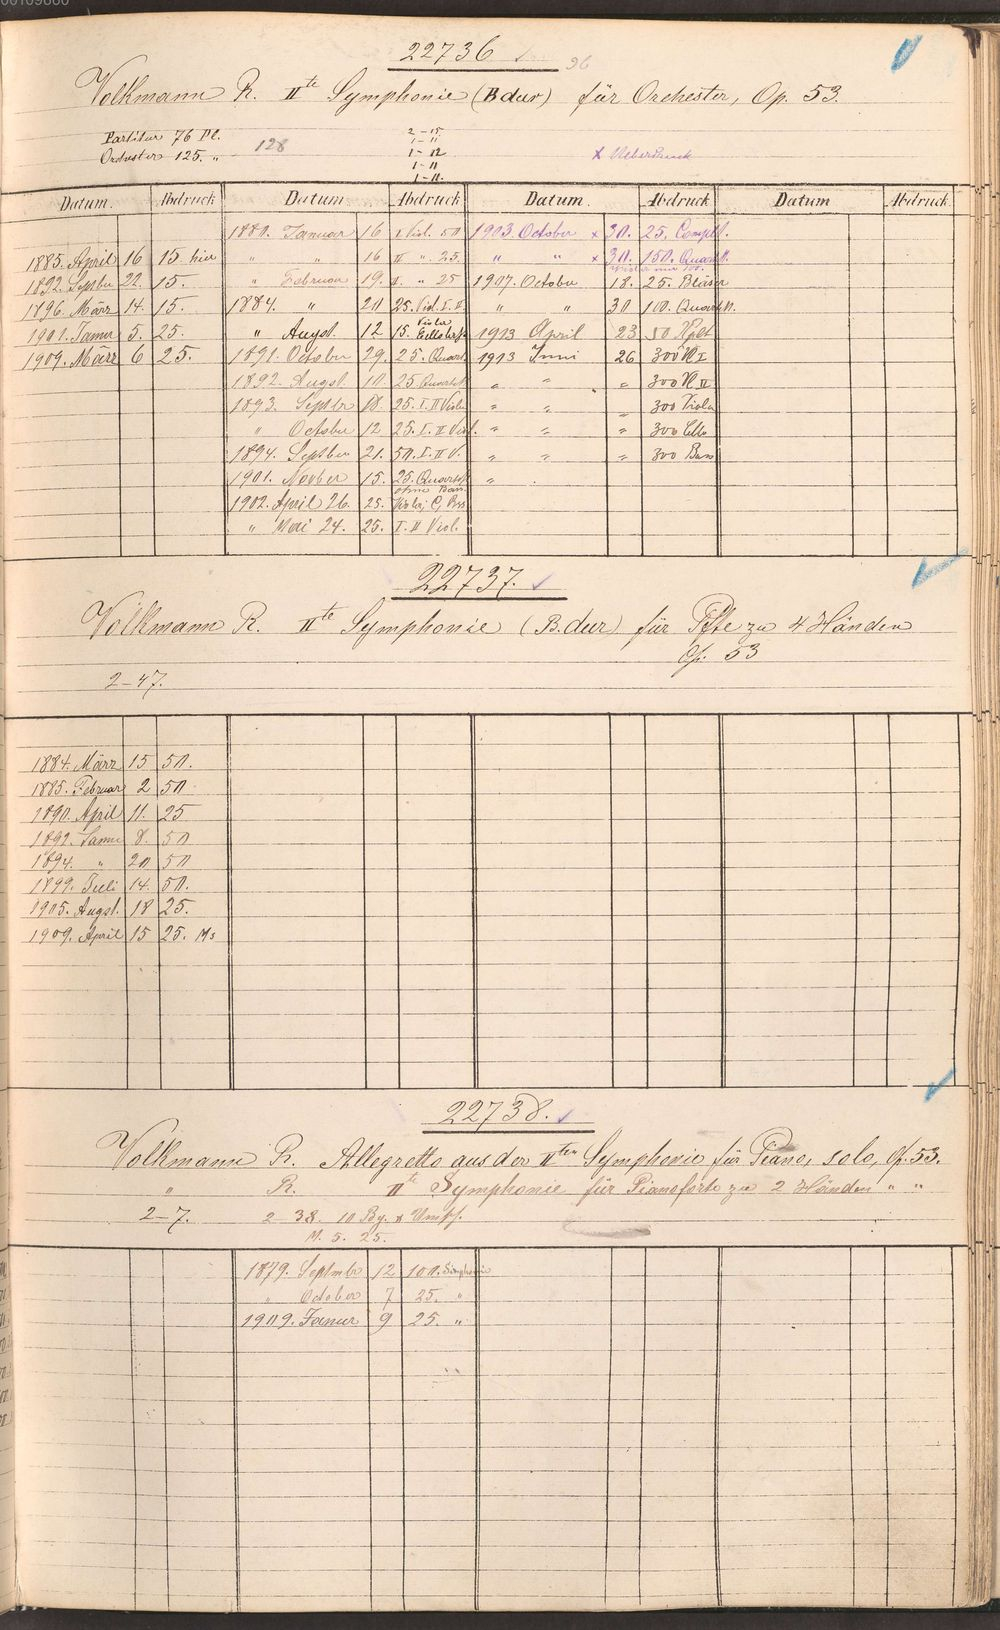 22736
96
Volkmann R. IIte Symphonie (B dur) für Orchester, Op. 53.
Partitur 76 Pl.
Orchester 125. "
128
2-15
1-11
1-12
1-11
1-11.
x Ueberdruck
Datum. Abdruck Datum Abdruck Datum. Abdruck Datum Abdruck
1880. Januar 16 I. Viol. 50 1903. October x 30. 25. Complt.
1885. April 16 15 hier " " 16 II " 25. " " x 30. 150. Quart.
1892. Septbr 22. 15. " Februar 19. II. " 25 1907. October 18. 25. Bläser
1896. März 14. 15. 1884. " 20 25. Viol. I. II. " " 30 100. Quart.
1901. Januar 5. 25. " Augst. 12 15. Viola, Cello 1913 April 23 50
1909. März 6 25. 1891. October 29. 25. Quart. 1913 Juni 26 300 Vl I
1892. Augst. 10 25. Quart. " " " 300 Vl II
1893. Septbr 18. 25. I. II Viola " " " 300 Viola
" October 12 25. I. II Viol. " " " 300 Cello
1894. Septber 21. 50. I. II V. " " " 300 Bass
1901. Novber 15. 25. Quart. ohne Bass. "
1902. April 26. 25. Viola, C, Bss
" Mai 24. 25. I. II Viol.
22737.
Volkmann R. IIte Symphonie (B. dur) für Pfte zu 4 Händen
Op. 53
2-47.
1884. März 15 50.
1885. Februar 2 50
1890. April 11. 25
1892. Januar 8. 50
1894. " 20 50
1899. Juli 14. 50.
1905. Augst. 18 25.
1909. April 15 25. Ms
22738.
Volkmann R. Allegretto aus der IIten Symphonie für Piano, solo, Op. 53.
" R. IIte Symphonie für Pianoforte zu 2 Händen " "
2-7. 2-38. 10 Bg. x Umschl.
M. 5. 25.
1879. Septmbr 12 100. Simphonie
" October 7 25. "
1909. Januar 9 25. "